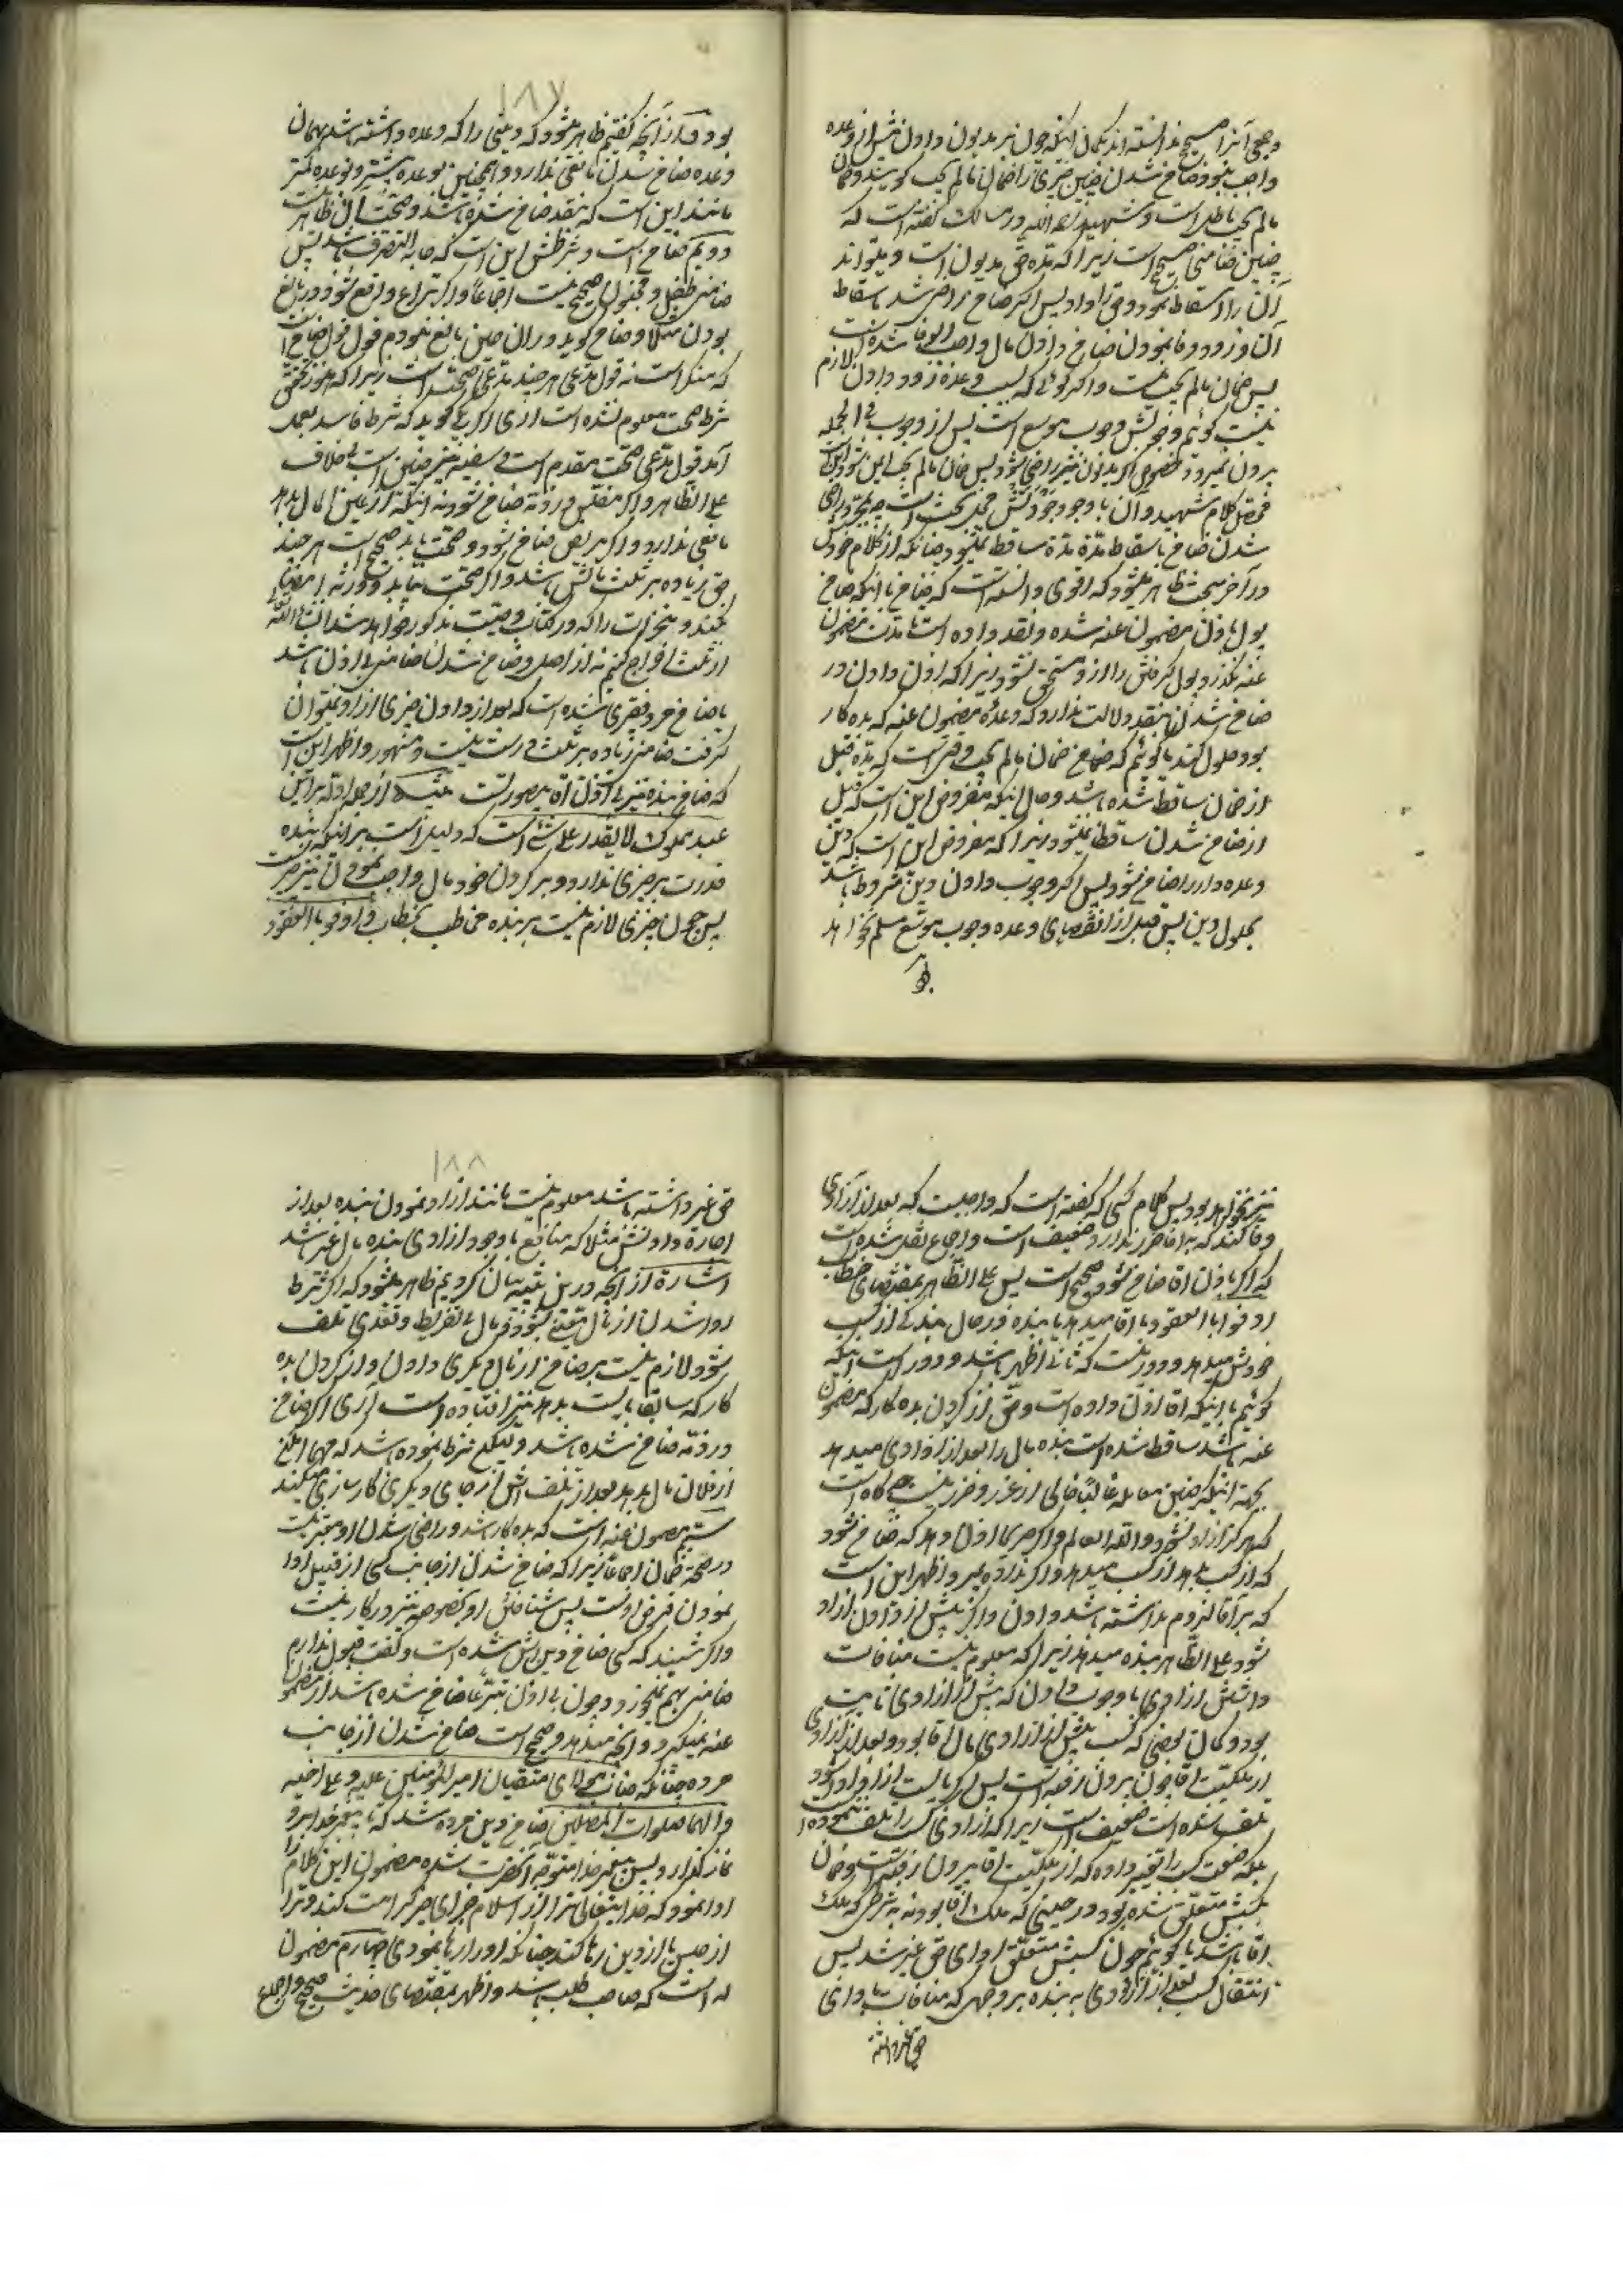 و جمعی آنرا صحیح ندانسته اند بگمان اینکه چون بر مدیون دادن پیش از وعده
واجب نبود ضامن شدن چنین چیزی را ضمان مالم یجب گویند و ضمان
مالم یجب باطل است و شهید رحمه الله در مسالک گفته است که
چنین ضامنی صحیح است زیرا که مدّه حقّ مدیون است و میتواند
آن را اسقاط نمود و حق را داد پس اگر ضامن راضی شد باسقاط
آن و زود وفا نمودن ضامن و دادن مال واجب الوفا شده است
پس ضمان مالم یجب نیست و اگر گوئی که بسبب وعده زود دادن لازم
نیست گوئیم وجوبش وجوب موسع است پس از وجوب فی الجمله
بیرون نمیرود خصوص اگر مدیون نیز راضی شود پس ضمان مالم یجب این نبود این است
کلام شهید و آن با وجود جودتش محل بحث است چه بمجرد راضی
شدن ضامن باسقاط مدّة مدّة ساقط نمیشود چنانکه از کلام خودش
در آخر مبحث ظاهر میشود که اقوی دانسته است که ضامن با اینکه ضامن
پول باذن مضمون عنه شده و نقد داده است تا مدت مضمون
عنه نگذرد پول گرفتن را از او مستحق نشود زیرا که اذن دادن در
ضامن شدن بنقد دلالت ندارد که وعدهٔ مضمون عنه که بده کار
بود حلول کند یا گوئیم که ضمان ضمان مالم یجب وقتی است که مدّه قبل
از ضمان ساقط شده باشد و حال اینکه مفروض این است که قبل
از ضامن شدن ساقط نمیشود زیرا که مفروض این است که دین
وعده دار را ضامن شود پس اگر وجوب دادن دین مشروط باشد
بحلول دین پس قبل از انقضای وعده وجوب موسع مسلم نخواهد
۱۸۷
بود و از آنچه گفتیم ظاهر میشود که دینی را که وعده داشته باشد بهمان
وعده ضامن شدن مانعی ندارد و همچنین بوعده بیشتر و بوعده کمتر
مانند این است که بنقد ضامن شده باشد و صحت آن ظاهر است
دویم ضامن است و شرطش این است که جایز التصرف باشد پس
ضامنی طفل و مجنون صحیح نیست اجماعاً و اگر نزاع واقع شود در بالغ
بودن مثلا و ضامن گوید در ان حین بالغ نبودم قول قول ضامن است
که منکر است نه قول مدعی هر چند مدعی صحت است زیرا که هنوز تحقق
شرط صحت معلوم نشده است اری اگر یکی گوید که شرط فاسد بعمل
آمد قول مدعی صحت مقدم است و سفیه نیز چنین است بخلاف
علی الظاهر و اگر مفلس در ذمّه ضامن شود نه اینکه از عین مال بدهد
مانعی ندارد و اگر مریض ضامن شود و صحت یابد صحیح است هر چند
حق زیاده بر ثلث مالش باشد و اگر صحت نیابد و ورثه امضا
نکنند و منجزات را که در کتاب وصیت مذکور خواهد شد ان شاء الله تعالی
از ثلث اخراج کنیم نه از اصل و ضامن شدن ضامنی بی اذن باشد
یا ضامن مرد فقیری شده است که بعد از دادن چیزی از او نمیتوان
گرفت ضامنی زیاده بر ثلث درست نیست و مشهور و اظهر این است
که ضامنی بنده نیز بی اذن آقا بیصورتست از جمله ادله براین
عبد مملوک لا یقدر علی شئ است که دلیل است بر اینکه بنده
قدرت بر چیزی ندارد و بر گردن خود مال واجب نمودن نیز چیزیست
پس چون چیزی لازم نیست بر بنده مخاطب بخطاب اوفوا بالعقود
نیز نخواهد بود پس کلام کسی که گفته است که واجبست که بعد از آزادی
وفا کند که به اقا ضرر ندارد ضعیف است و اجماع نقل شده است
که اگر باذن اقا ضامن شود صحیح است پس علی الظاهر بمقتضای خطاب
اوفوا بالعقود یا اقا میدهد یا بنده در حال بندگی از کسب
خودش میدهد و دور نیست که ثانی اظهر باشد و دور است اینکه
گوئیم با اینکه اقا اذن داده است و حق از گردن بده کار که مضمون
عنه باشد ساقط شده است بنده مال را بعد از ازادی میدهد
بجهة اینکه چنین معامله غالباً خالی از غرر و ضرر نیست چه گاه است
که هرگز ازاد نشود و الله العالم و اگر صریحا اذن دهد که ضامن شود
که از کسب بدهد از کسب میدهد و اگر نداده بمیرد اظهر این است
که بر آقا لزوم نداشته باشد دادن و اگر پیش از دادن ازاد
شود علی الظاهر بنده میدهد زیرا که معلوم نیست منافات
داشتن ازادی با وجوب دادن که پیش از ازادی ثابت
بود و گمان بعضی که کسب پیش از ازادی مال اقا بود و بعد از ازادی
از ملکیت اقا چون بیرون رفته است پس اگر بایست ازاو ادا شود
تلف شده است ضعیف است زیرا که ازادی کسب را تلف ننموده است
بلکه صفت کسب را تغییر داده که از ملکیت اقا بیرون رفته است و ضمان
بکسبش متعلق شده بود در حینی که ملک اقا بود نه بشرطی که ملک
اقا باشد یا گوئیم چون کسبش متعلق ادای حق غیر شد پس
انتقال کسب بعد از ازادی به بنده بر وجهی که منافات با ادای
حق غیر داشته
۱۸۸
حق غیر داشته باشد معلوم نیست مانند ازاد نمودن بنده بعد از
اجاره دادنش مثلا که منافع با وجود ازادی بنده مال غیر باشد
اشارة از آنچه درین بیان کردیم ظاهر میشود که اگر شرط
ادا شدن از مال معینی بشود و مال بی تفریط و تعدی تلف
شود لازم نیست بر ضامن از مال دیگری دادن و از گردن بده
کار که سابقا بایست بدهد نیز افتاده است آری اگر ضامن
در ذمّه ضامن شده باشد و لیکن شرط نموده باشد که مهما امکن
از فلان مال بدهد بعد از تلف انش از جای دیگری کارسازی میکند
سیم مضمون عنه است که بده کار باشد و راضی شدن او معتبر نیست
در صحة ضمان اجماعاً زیرا که ضامن شدن از جانب کسی از قبیل ادا
نمودن قرض اوست پس شناختن او بخصوصه نیز در کار نیست
و اگر شنید که کسی ضامن دین اش شده است و گفت قبول ندارم
ضامنی بهم نمیخورد و چون بی اذن تبرعا ضامن شده باشد از مضمون
عنه نمیگیرد و آنچه میدهد و صحیح است ضامن شدن از جانب
مرده چنانکه جناب مولای متقیان امیر المؤمنین علیه و علی اخیه
و الهما صلوات المصلین ضامن دین مرده شد که تا پیغمبر خدا بر او
نماز گذارد و پس پیغمبر خدا متوجه آنحضرت شده مضمون این کلام را
ادا نمود که خدایتعالی ترا از اسلام جزای خیر کرامت کند و ترا
از حبس یا از دین رها کند چنانکه او را رها نمودی چهارم مضمون
له است که صاحب طلب باشد و اظهر بمقتضای حدیث صحیح و اجماع